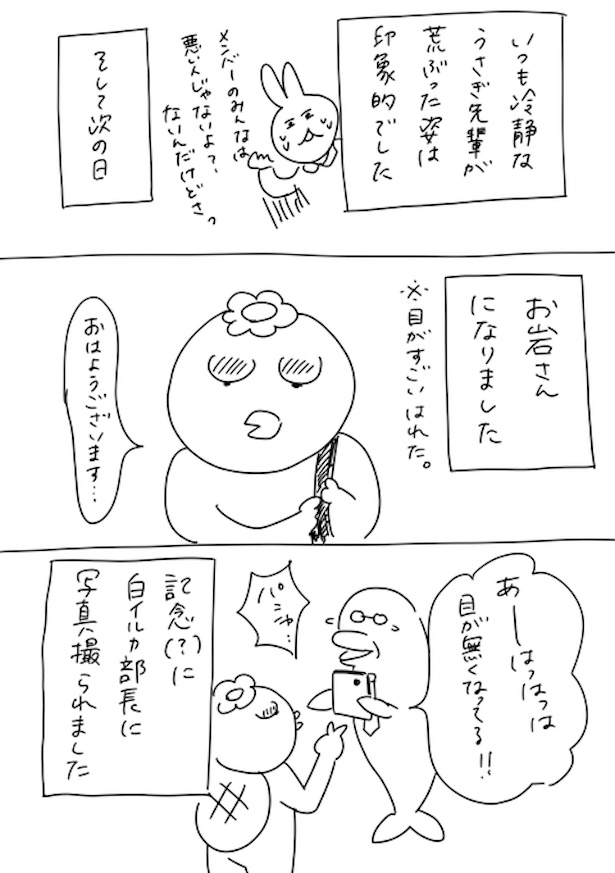 いつも冷静な
うさぎ先輩が
荒ぶった姿は
印象的でした
メンバーのみんなは
悪いんじゃないよ?、
ないんだけどさっ
そして次の日
お岩さん
になりました
※目がすごいはれた。
おはようございます…
あーはっはっは
目が無くなってる!!
パシャ
記念(?)に
白イルカ部長に
写真撮られました